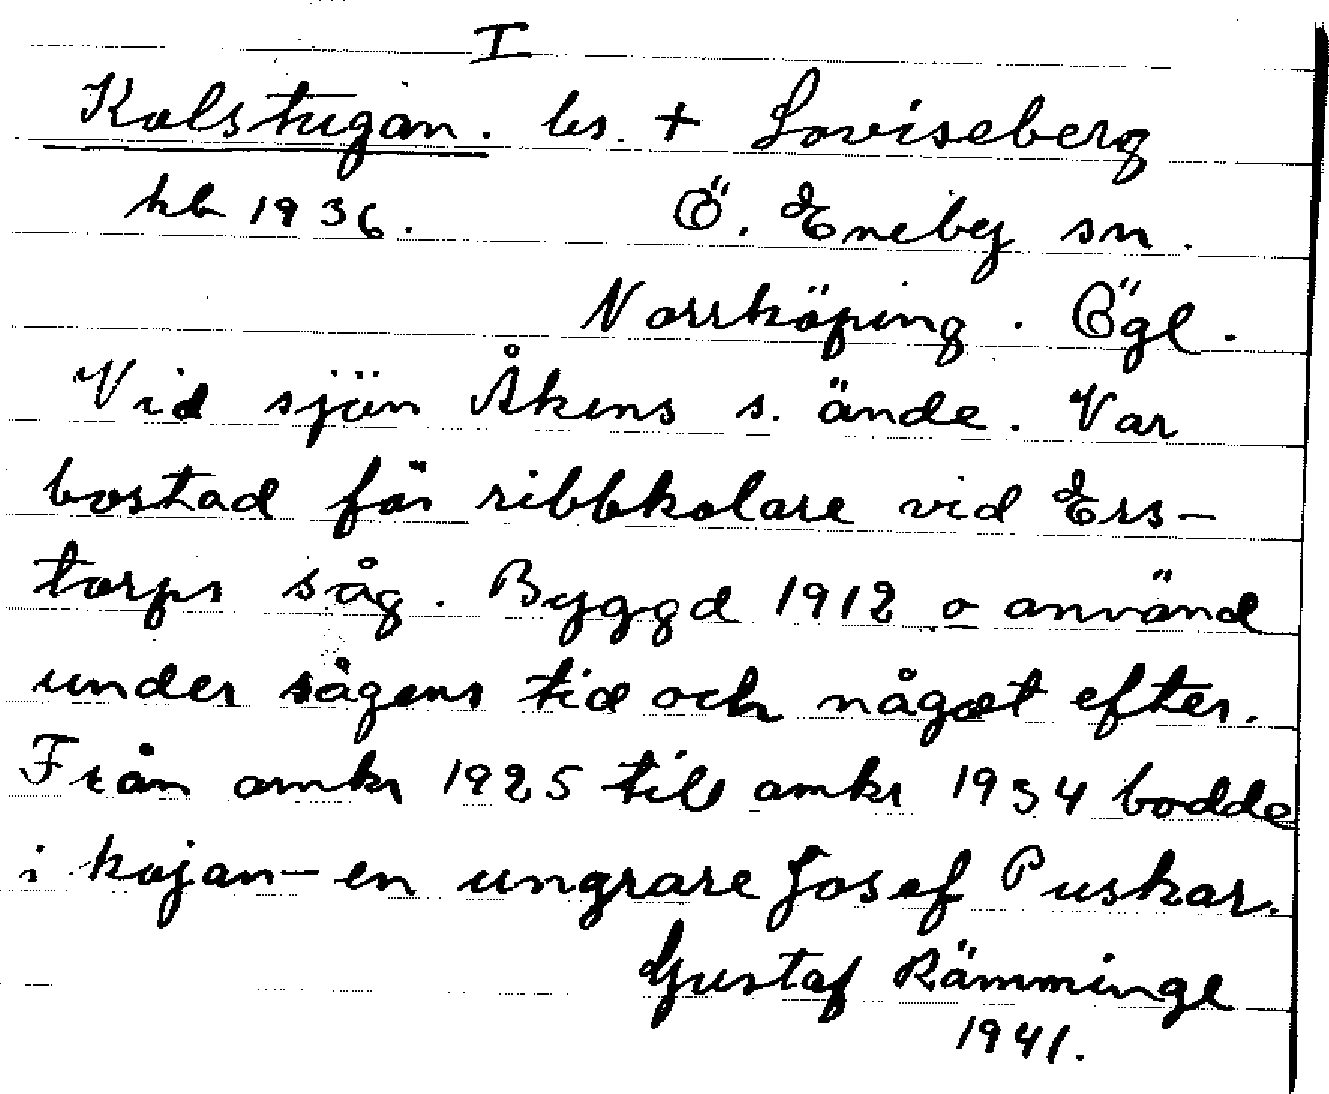 I
Kolstugan. ls. + Loviseberg
hb 1936. Ö. Eneby sn.
Norrköping. Ögl.
Vid sjön Åkens s. ände. Var
bostad för ribbkolare vid Ers-
torps såg. Byggd 1912 o använd
under sågens tid och något efter.
Från omkr 1925 till omkr 1934 bodde
i kojan - en ungrare Josef Puskar.
Gustaf Rämminge
1941.